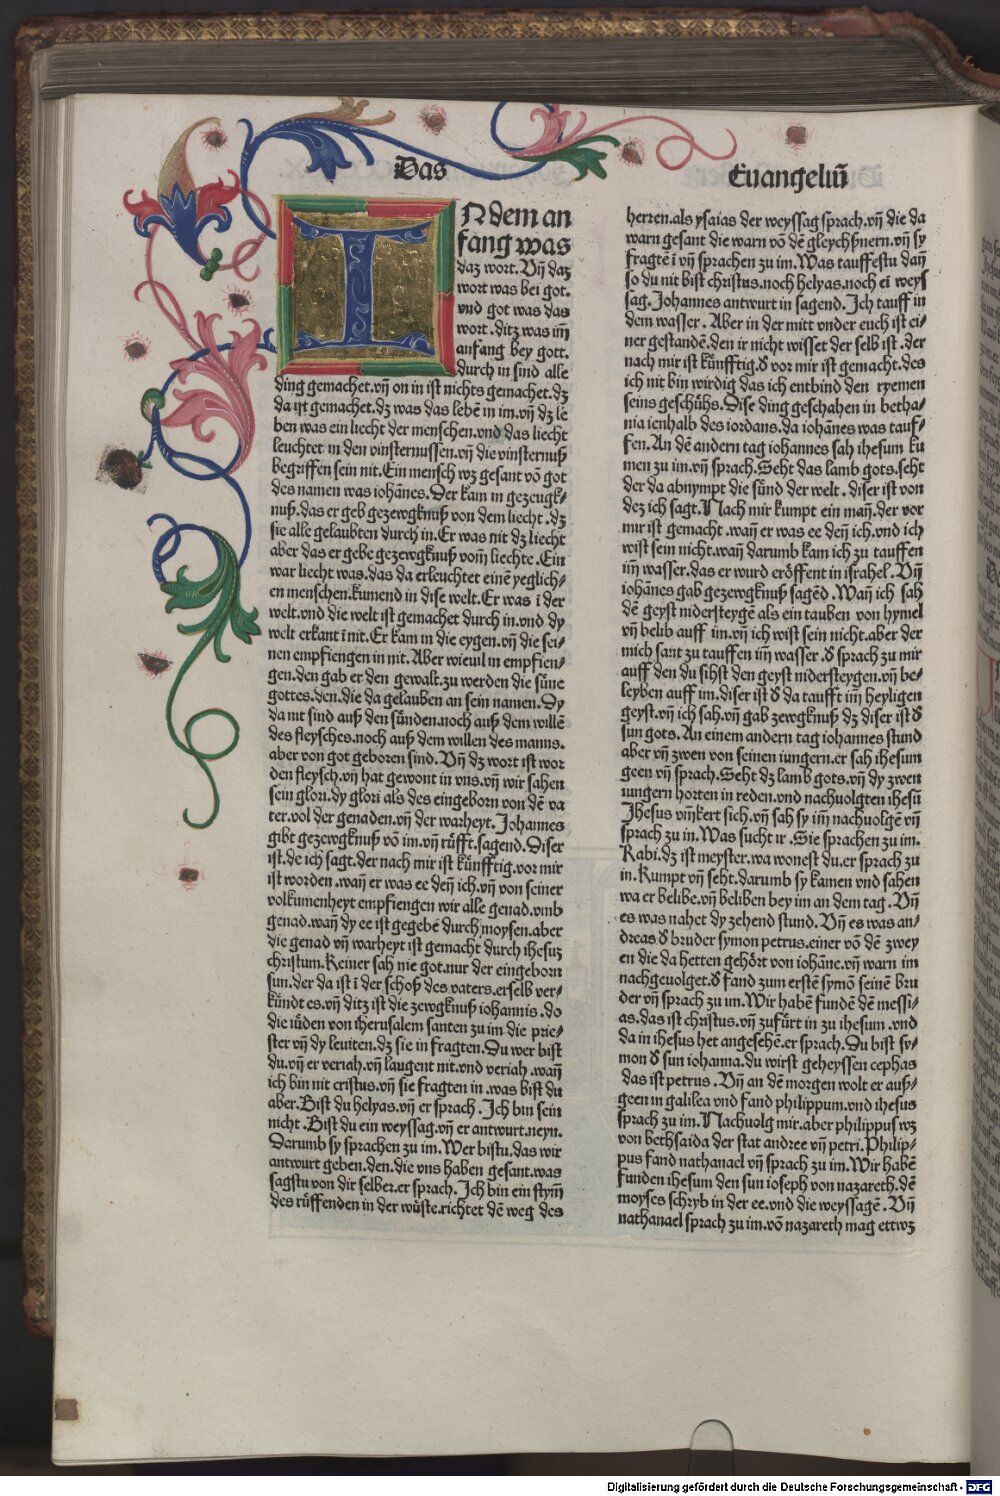 Das
Euangeliū
IN dem an
fang was
daz wort. Vn̄ daz
wort was bei got.
vnd got was das
wort. ditz was im̄
anfang bey gott.
durch in sind alle
ding gemachet. vn̄ on in ist nichts gemachet. dz
da ist gemachet. dz was das lebē in im. vn̄ dz le
ben was ein liecht der menschen. vnd das liecht
leuchtet in den vinsternussen. vn̄ die vinsternuß
begriffen sein nit. Ein mensch wz gesant vō got
des namen was iohānes. Der kam in gezeugk⸗
nuß. das er geb gezewgknuß von dem liecht. dz
sie alle gelaubten durch in. Er was nit dz liecht
aber das er gebe gezewgknuß vom̄ liechte. Ein
war liecht was. das da erleuchtet einē yeglich⸗
en menschen. kumend in dise welt. Er was ī der
welt. vnd die welt ist gemachet durch in. vnd dy
welt erkant ī nit. Er kam in die eygen. vn̄ die sei⸗
nen empfiengen in nit. Aber wieuil in empfien⸗
gen. den gab er den gewalt. zu werden die süne
gottes. den. die da gelauben an sein namen. Dy
da nit sind auß den sünden. noch auß dem willē
des fleysches. noch auß dem willen des manns.
aber von got geboren sind. Vn̄ dz wort ist wor
den fleysch. vn̄ hat gewont in vns. vn̄ wir sahen
sein glori. dy glori als des eingeborn von dē va
ter. vol der genaden. vn̄ der warheyt. Johannes
gibt gezewgknuß vō im. vn̄ rüfft. sagend. Diser
ist. de ich sagt. der nach mir ist künfftig. vor mir
ist worden. wan̄ er was ee den̄ ich. vn̄ von seiner
volkumenheyt empfiengen wir alle genad. vmb
genad. wan̄ dy ee ist gegebē durch moysen. aber
die genad vn̄ warheyt ist gemacht durch ihesuz
christum. Keiner sah nie got. nur der eingeborn
sun. der da ist ī der schoß des vaters. erselb ver⸗
kündt es. vn̄ ditz ist die zewgknuß iohannis. do
die iüden von iherusalem santen zu im die prie⸗
ster vn̄ dy leuiten. dz sie in fragten. Du wer bist
du. vn̄ er veriah. vn̄ laugent nit. vnd veriah. wan̄
ich bin nit cristus. vn̄ sie fragten in. was bist du
aber. Bist du helyas. vn̄ er sprach. Ich bin sein
nicht. Bist du ein weyssag. vn̄ er antwurt. neyn.
Darumb sy sprachen zu im. Wer bistu. das wir
antwurt geben. den. die vns haben gesant. was
sagstu von dir selber. er sprach. Ich bin ein stym̄
des rüffenden in der wüste. richtet dē weg des
herren. als ysaias der weyssag sprach. vn̄ die da
warn gesant die warn vō dē gleychßnern. vn̄ sy
fragtē ī vn̄ sprachen zu im. Was tauffestu dan̄
so du nit bist christus. noch helyas. noch ei weys
sag. Johannes antwurt in sagend. Ich tauff in
dem wasser. Aber in der mitt vnder euch ist ei⸗
ner gestandē. den ir nicht wisset der selb ist. der
nach mir ist künfftig. d̕ vor mir ist gemacht. des
ich nit bin wirdig das ich entbind den ryemen
seins geschühs. Dise ding geschahen in betha⸗
nia ienhalb des iordans. da iohānes was tauf⸗
fen. An dē andern tag iohannes sah ihesum ku
men zu im. vn̄ sprach. Seht das lamb gots. seht
der da abnympt die sünd der welt. diser ist von
dez ich sagt. Nach mir kumpt ein man̄. der vor
mir ist gemacht. wan̄ er was ee den̄ ich. vnd ich
wist sein nicht. wan̄ darumb kam ich zu tauffen
im̄ wasser. das er wurd eröffent in israhel. Vn̄
iohānes gab gezewgknuß sagēd. Wan̄ ich sah
dē geyst nidersteygē als ein tauben von hymel
vn̄ belib auff im. vn̄ ich wist sein nicht. aber der
mich sant zu tauffen im̄ wasser. d̕ sprach zu mir
auff den du sihst den geyst nidersteygen. vn̄ be⸗
leyben auff im. diser ist d̕ da taufft im̄ heyligen
geyst. vn̄ ich sah. vn̄ gab zewgknuß dz diser ist d̕
sun gots. An einem andern tag iohannes stund
aber vn̄ zwen von seinen iungern. er sah ihesum
geen vn̄ sprach. Seht dz lamb gots. vn̄ dy zwen
iungern horten in reden. vnd nachuolgten ihesū
Jhesus vm̄kert sich. vn̄ sah sy im̄ nachuolgē vn̄
sprach zu in. Was sucht ir. Sie sprachen zu im.
Rabi. dz ist meyster. wa wonest du. er sprach zu
in. Kumpt vn̄ seht. darumb sy kamen vnd sahen
wa er belibe. vn̄ beliben bey im an dem tag. Vn̄
es was nahet dy zehend stund. Vn̄ es was an⸗
dreas d̕ bruder symon petrus. einer vō dē zwey
en die da hetten gehört von iohāne. vn̄ warn im
nachgeuolget. d̕ fand zum erstē symō seinē bru
der vn̄ sprach zu im. Wir habē fundē dē messi⸗
as. das ist christus. vn̄ zufürt in zu ihesum. vnd
da in ihesus het angesehē. er sprach. Du bist sy⸗
mon d̕ sun iohanna. du wirst geheyssen cephas
das ist petrus. Vn̄ an dē morgen wolt er auß⸗
geen in galilea vnd fand philippum. vnd ihesus
sprach zu im. Nachuolg mir. aber philippus wz
von bethsaida der stat andree vn̄ petri. Philip⸗
pus fand nathanael vn̄ sprach zu im. Wir habē
funden ihesum den sun ioseph von nazareth. dē
moyses schryb in der ee. vnd die weyssagē. Vn̄
nathanael sprach zu im. vō nazareth mag ettwz
Digitalisierung gefördert durch die Deutsche Forschungsgemeinschaft - DFG